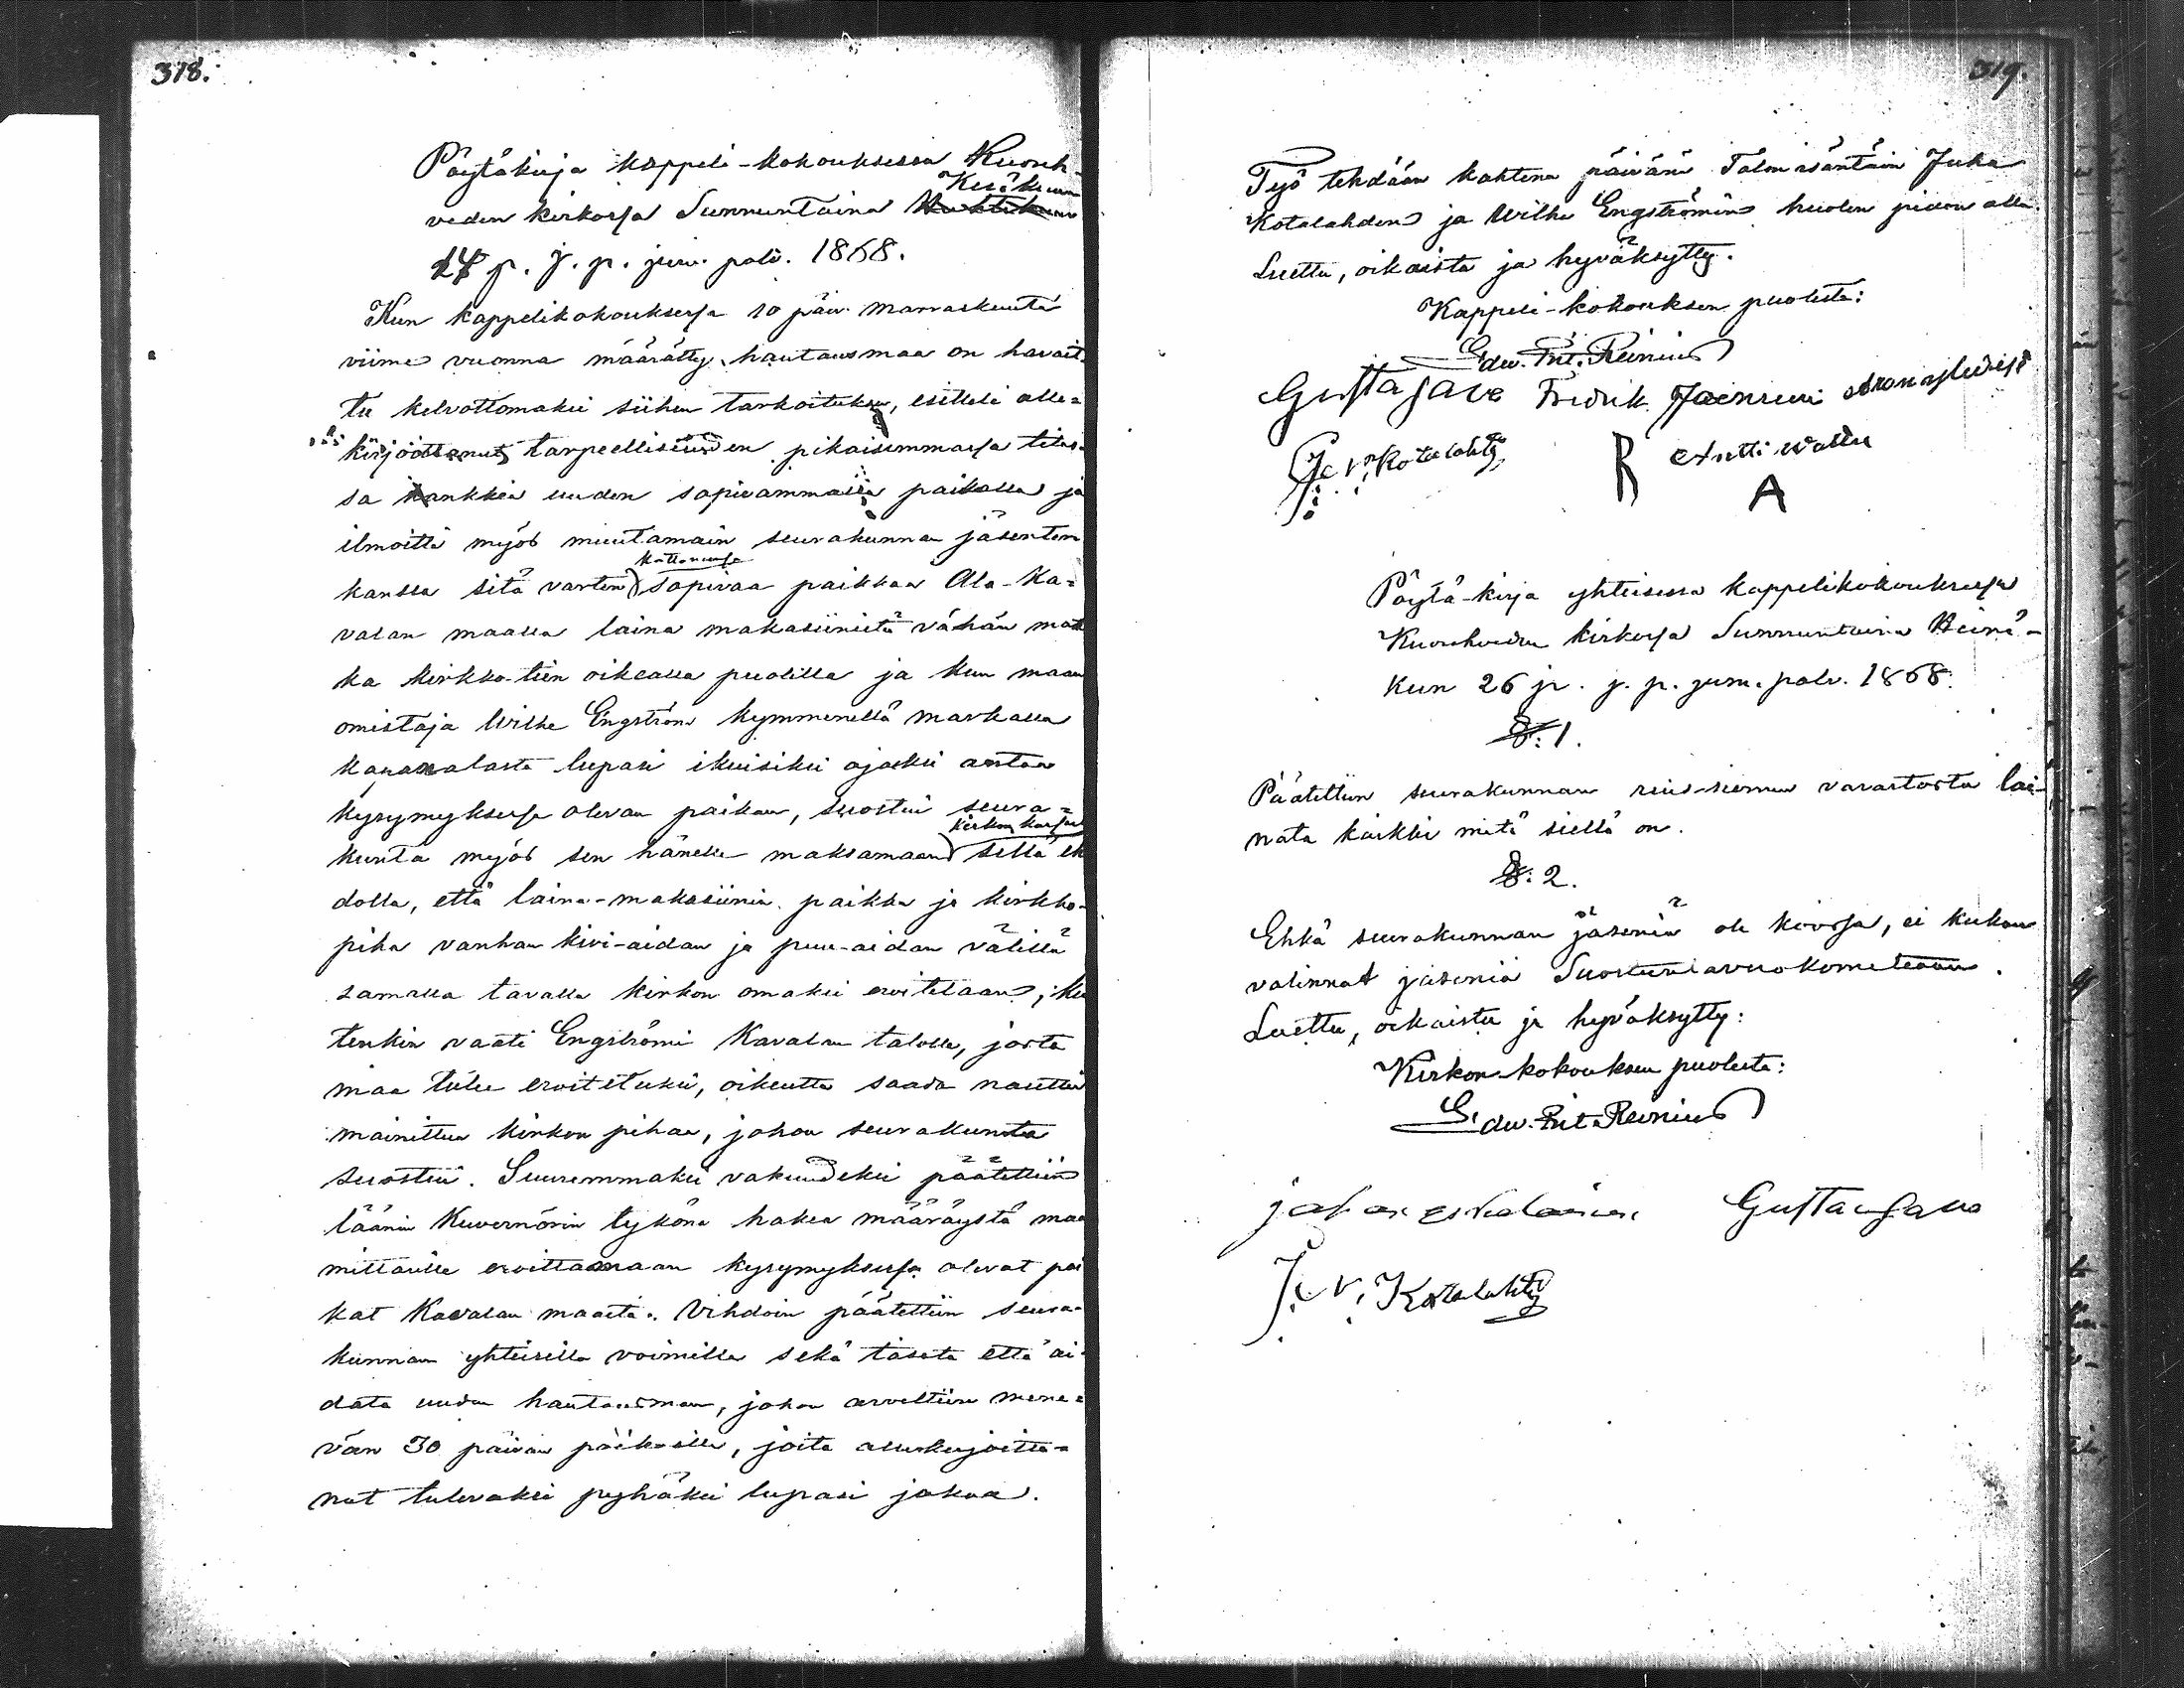 318.
Pöytäkirja kappeli-kokouksessa Kuoreh-
Kesäkuun
veden kirkossa Sunnuntaina Huhtikuun
27 p. j. p. jum. palv. 1868.
Kun kappelikokouksessa 10 päiv. marraskuuta
viime vuonna määrätty hautausmaa on havait-
tu kelvottomaksi siihen tarkoitukseen, esitteli alle-
kirjoittanut tarpeellisuuden pikaisemmassa tilas-
sa hankkia uuden sopivammalla paikalla ja
ilmoitti myös muutamain seurakunnan jäsenten
kattoneensa
kanssa sitä varten sopivaa paikkaa Ala-Ka-
valan maalla laina makasiinista vähän mat
ka kirkko-tien oikealla puolella ja kun maan
omistaja Wilhe Engström kymmenellä markalla
kapanalasta lupasi ikuisiksi ajaksi antaa
kysymyksessä olevan paikan, suostui seura-
kirkon kassasta
kunta myös sen hänelle maksamaan sillä eh
dolla, että laina-makasiinin paikka ja kirkko-
piha vanhan kivi-aidan ja puu-aidan välillä
samalla tavalla kirkon omaksi eroitetaan, ku
tenkin vaati Engströmi Kavalan talolle, josta
maa tulee eroitetuksi, oikeutta saada nauttia
mainittua kirkon pihaa, johon seurakunta
suostui. Suuremmaksi vakuudeksi päätettiin
läänin Kuvernörin tykönä hakea määräystä maa
mittarille eroittamaan kysymyksessä olevat pai
kat Kavalan maasta. Vihdoin päätettiin seura-
kunnan yhteisillä voimilla sekä tasata että ai-
data uuden hautausmaan, johon arveltiin mene-
vän 30 päivän paikoille, joita allekirjoitta-
nut tulevaksi pyhäksi lupasi jakaa.
319.
Työ tehdään kahtena päivänä Talon isäntäin Juha
Kotalahden ja Wilhe Engströmin huolen pidon alla.
Luettu, oikaistu ja hyväksytty.
Kappeli-kokouksen puolesta:
Edw. Frit. Reinius
Gusta Save Fredrik
J. V. Kotalahty R Antti
A
Pöytä-kirja yhteisessä kappelikokouksessa
Kuoreheden kirkossa Sunnuntaina Heinä-
kun 26 p. j. p. jum. palv. 1868.
§: 1.
Päätettiin seurakunnan siemen varastosta lai-
nata kaikki mitä siellä on.
§: 2.
Ehkä seurakunnan jäseniä oli koossa, ei kukaan
valinnut jäseniä Suostuntavuokomiteaan.
Luettu, oikaistu ja hyväksytty:
Kirkon-kokouksen puolesta:
Edw. Frit. Reinius
johan eskolainen Gusta Save
J. V. Kotalahty